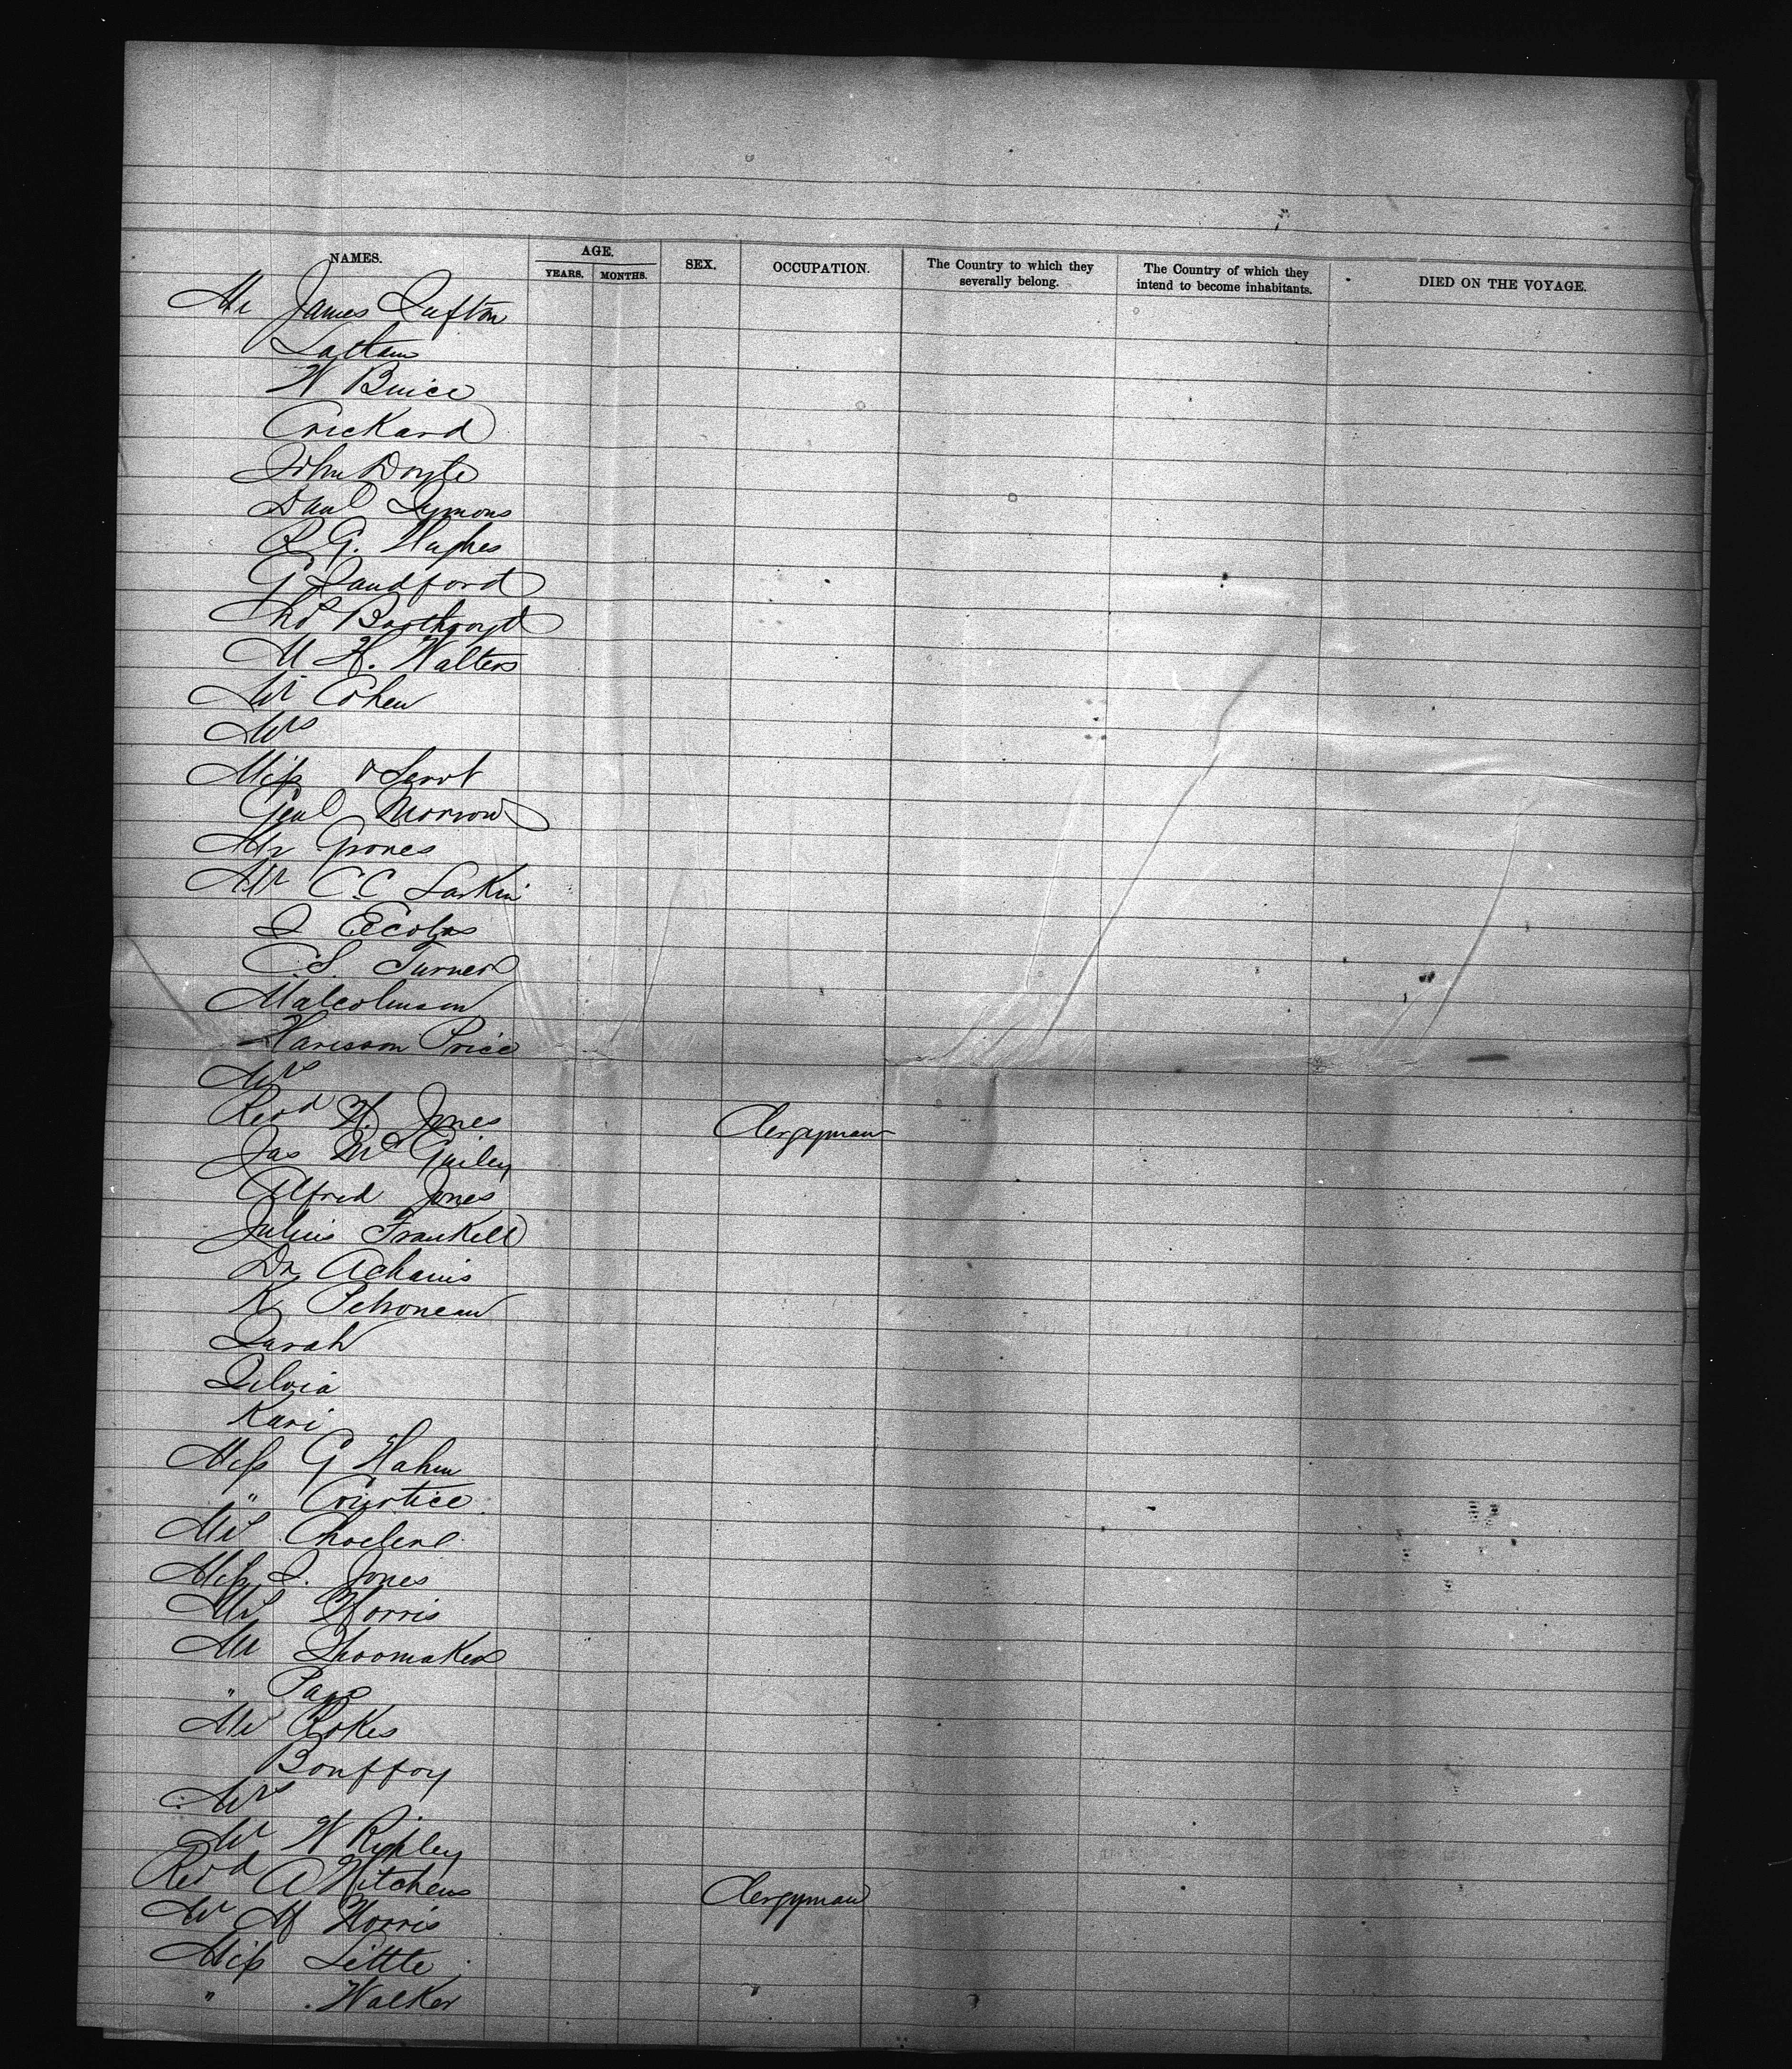 NAMES. AGE. SEX. OCCUPATION. The Country to which they severally belong. The Country of which they intend to become inhabitants. DIED ON THE VOYAGE.
YEARS. MONTHS.
Mr James Sufton
Latham
W Bruce
Crickard
John Doyle
Danl Symons
R G. Hughes
G Sandford
Thos Boothroyd
M H. Walters
Mr Cohen
Mrs
Miss & Servt
Genl Morrow
Mr Grones
Mr C C Larkin
S
C. S. Turner
Malcolmson
Harisson Price
Mrs
Revd H. Jones Clergyman
Jas Mc Guiley
Alfred Jones
Julius Frankell
Dr Achanis
K Petroneau
Sarah
Silvia
Kari
Miss G Hahn
" Courtice
Mrs
Miss S. Jones
Mrs Norris
Mr Shoomaker
" Page
Mr Rokes
Bonffoy
Mrs
Mr W Ripley
Revd A Hitchens Clergyman
Mr M Norris
Miss Little
" Walker